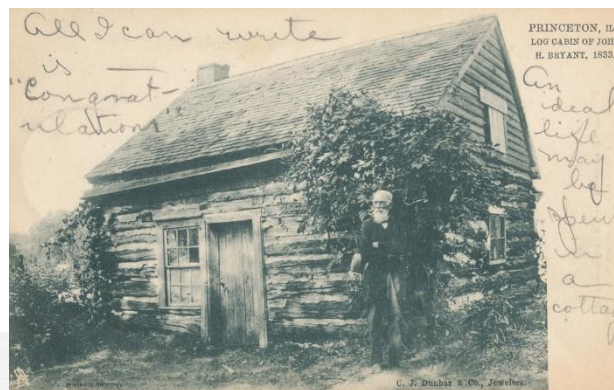 All I can write
is —
"Congrat-
ulations"
PRINCETON, IL
LOG CABIN OF JOH
H. BRYANT, 1833.
An
ideal
life
may
be
spent
in
a
cottag
C. J. Dunbar & Co., Jewelers.